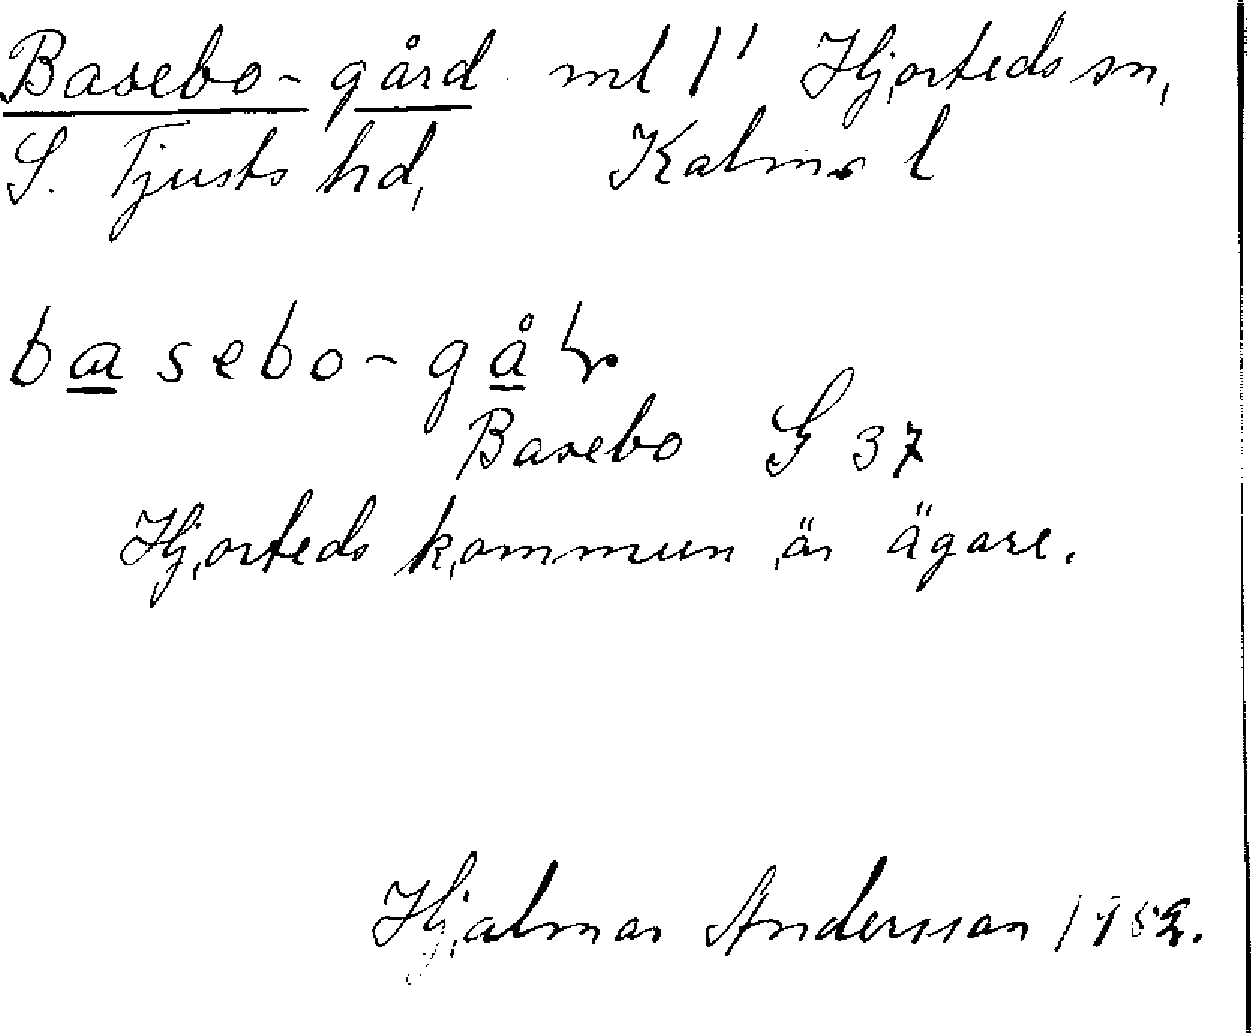 Basebo-gård ml 1' Hjorteds sn,
S. Tjusts hd, Kalmar l
basebo-gå
Basebo G 37
Hjorteds kommun är ägare.
Hjalmar Andersson